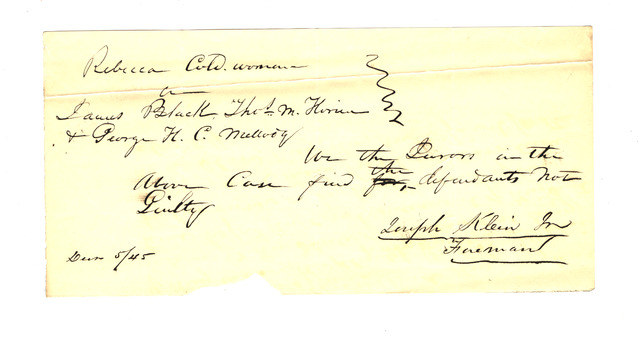 Rebecca Cold. woman
vs
James Black Thos. M. Horine
& George H. C. Melody
We the Jurors in the
Above Case find the Defendants Not
Guilty
Joseph Klein Jr
Foreman
Decr 5/45